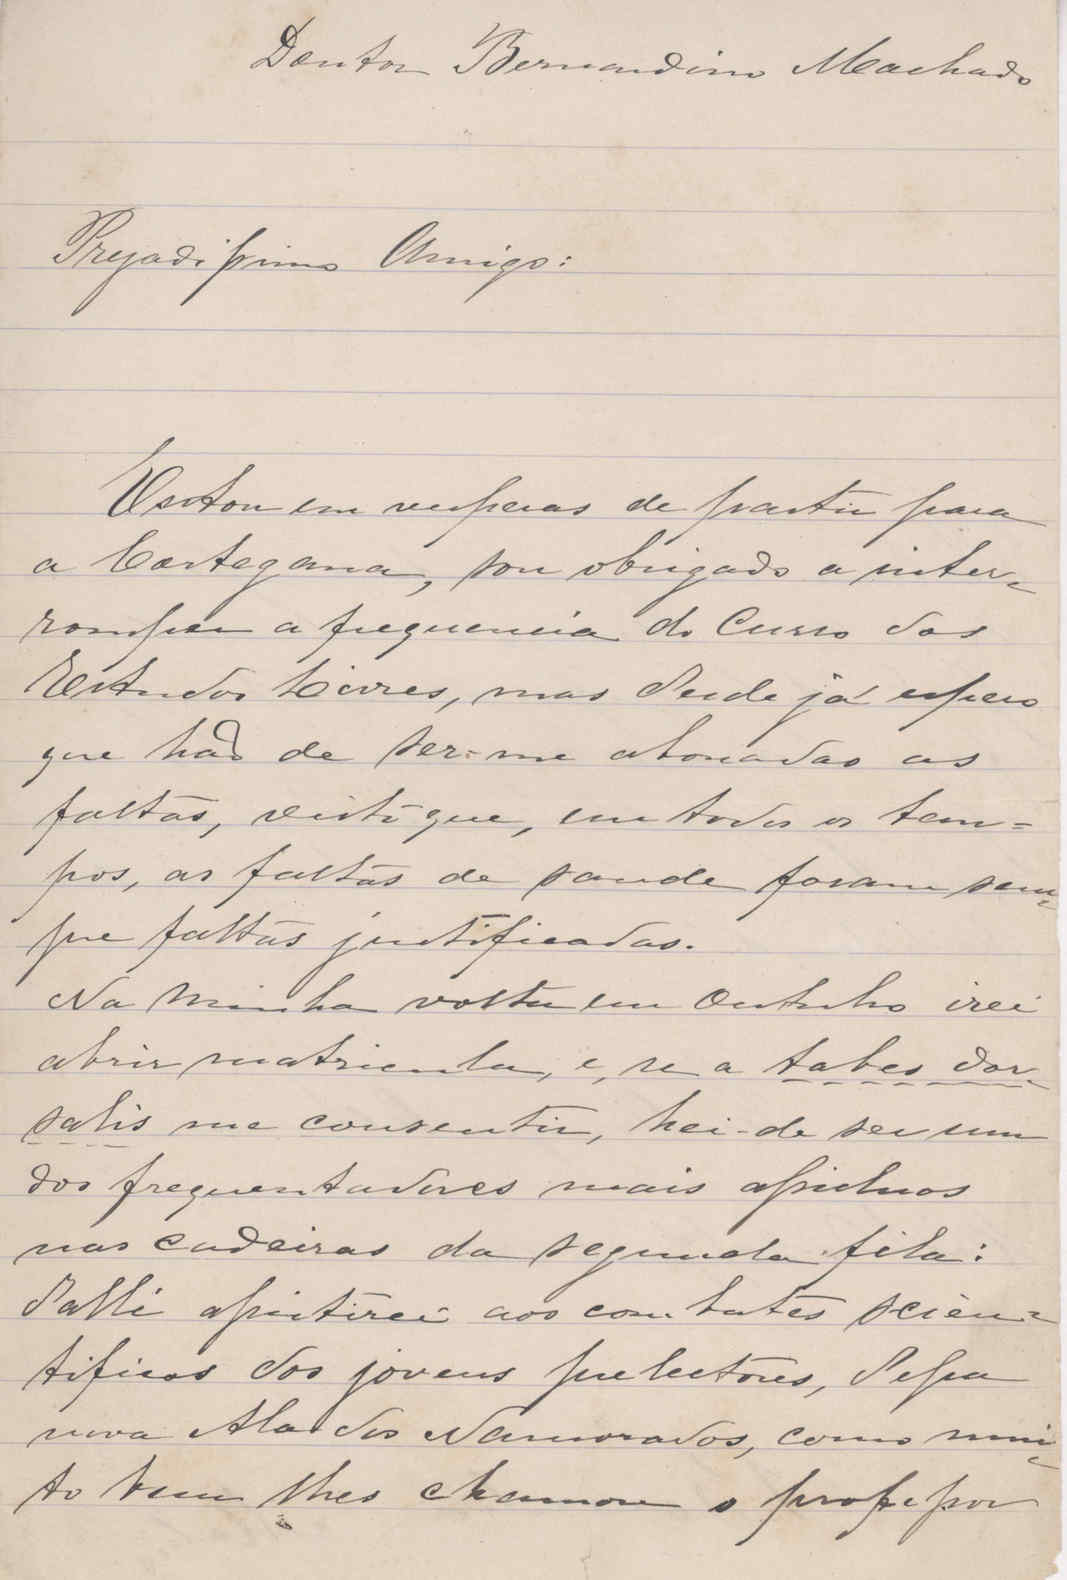 Doutor Bernardino Machado
Prezadissimo Amigo:
Estou em vesperas de partir para
a Cortegana, sou obrigado a inter-
romper a frequencia do Curso dos
Estudos Livres, mas desde já espero
que hão de ser-me abonadas as
faltas, visto que, em todos os tem=
pos, as faltas de saude foram sem-
pre faltas justificadas.
Na minha volta em Outubro irei
abrir matricula, e, se a tabes dor-
salis me consentir, hei-de ser um
dos frequentadores mais assiduos
nas cadeiras da segunda fila:
d'alli assistirei aos combates scien-
tificos dos jovens prelectores, dessa
nova Ala dos Namorados, como mui-
to bem lhes chamou o professor